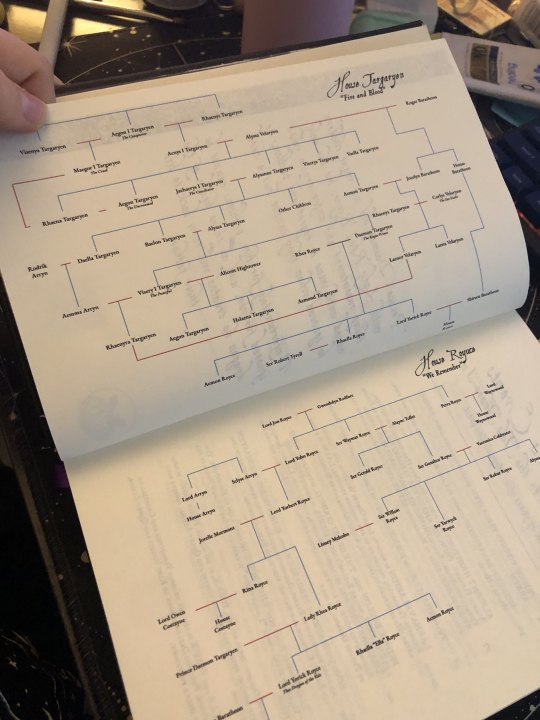 House Targaryen
"Fire and Blood"
Rogar Baratheon
Visenya Targaryen
Aegon I Targaryen
The Conqueror
Rhaenys Targaryen
Maegor I Targaryen
The Cruel
Aenys I Targaryen
Alyssa Velaryon
Rhaena Targaryen
Aegon Targaryen
The Uncrowned
Jaehaerys I Targaryen
The Conciliator
Alysanne Targaryen
Viserys Targaryen
Vaella Targaryen
Jocelyn Baratheon
House
Baratheon
Rodrik
Arryn
Daella Targaryen
Baelon Targaryen
Alyssa Targaryen
Other Children
Aemon Targaryen
Rhaenys Targaryen
Corlys Velaryon
The Sea Snake
Aemma Arryn
Visery I Targaryen
The Peaceful
Alicent Hightower
Rhea Royce
Daemon Targaryen
The Rogue Prince
Laenor Velaryon
Laena Velaryon
Rhaenyra Targaryen
Aegon Targaryen
Helaena Targaryen
Aemond Targaryen
Aemon Royce
Ser Robert Tyrell
Rhaella Royce
Lord Yorick Royce
House Royce
"We Remember"
Lord Jon Royce
Gwendolyn Redfort
Petra Royce
Lord
Waynwood
House
Waynwood
Lord Arryn
Selyse Arryn
Lord Yohn Royce
Ser Waymar Royce
Alayne Tollet
House Arryn
Lord Yorbert Royce
Ser Gerold Royce
Ser Gunthor Royce
Jorelle Mormont
Linsey Melcolm
Ser Willam
Royce
Ser Yorwyck
Royce
Lord Owen
Costayne
Rina Royce
House
Costayne
Lady Rhea Royce
Prince Daemon Targaryen
Lord Yorick Royce
The Dragon of the Vale
Rhaella "Ella" Royce
Aemon Royce
Baratheon